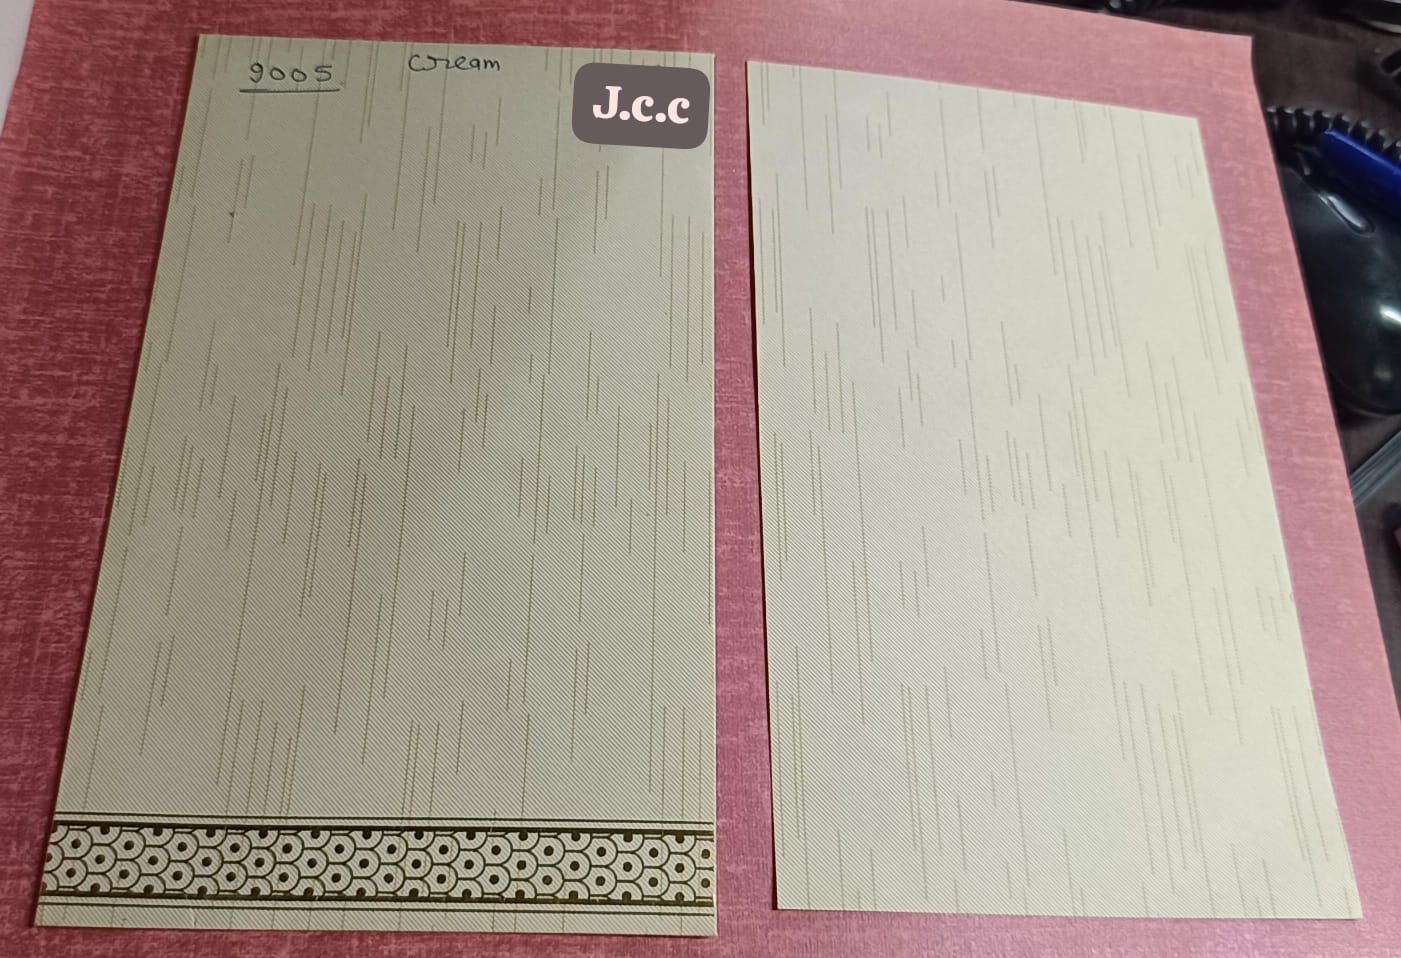 9005
Cream
J.c.c